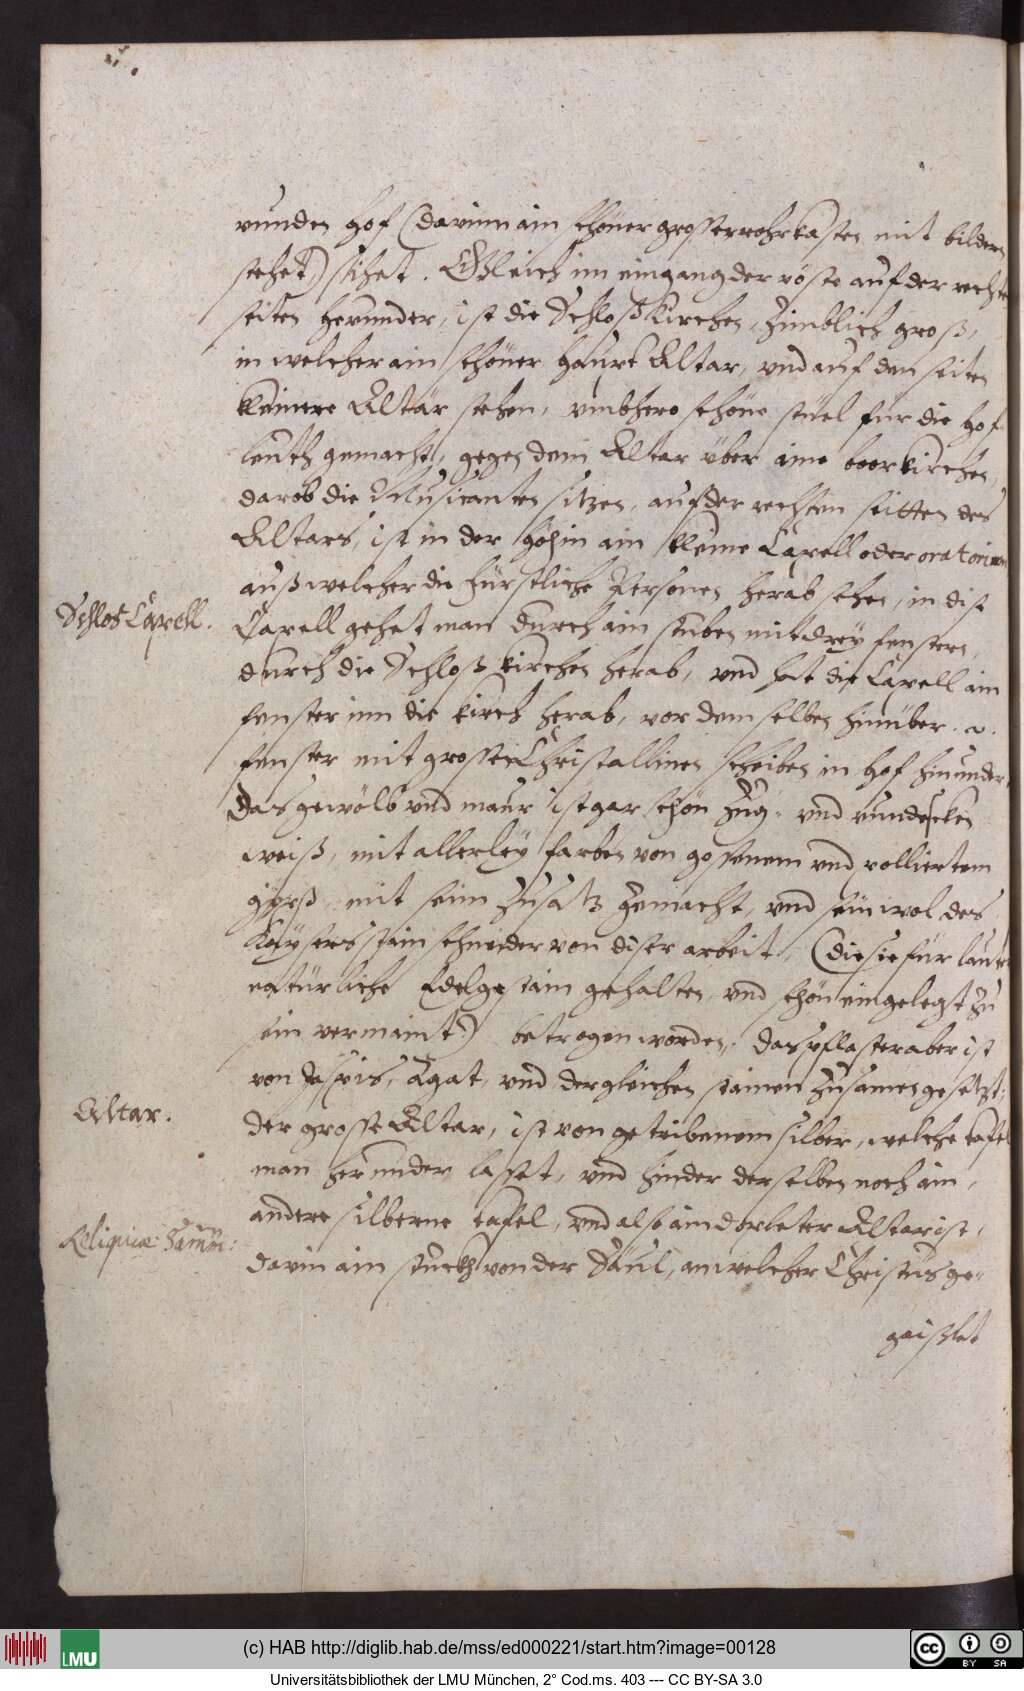 runden Hof (darinn ain schöner grosser rohrkasten mit bildern
stehet) sihet. Gleich im eingang der röste auf der rechten
seiten herunder, ist die Schloß Kirchen, zimblich groß,
in welcher ain schöner haupt Altar, vnd auf den seiten
kleinere Altär stehen, umbhero schöne stüel für die Hof
leuth gemacht, gegen dem Altar über aine boorkirchen,
darob die Musicanten sitzen, auf der rechten seitten des
Altars, ist in der höhin ain kleine Capell oder oratorium
auß welcher die Fürstliche Personen herab sehen, in dise
Schlos Capell.
Capell gehet man durch ain stuben mit drey fenstern,
durch die Schloß kirchen herab, vnd hat die Capell ain
fenster inn die kirch herab, vor demselben hinüber .2.
fenster mit grossen Christallinen scheiben in Hof hinunder,
Das gewölb vnd maur ist gar schön Zug- vnd rundecken
weiß, mit allerley farben von gossenem vnd polliertem
gipß, mit seim zusatz gemacht, vnd sein wol des
Kaysers stainschneider von diser arbeit, (die sie für lauter
natürliche Edelgestain gehalten, vnd schön eingelegt zu
sein vermaint) betrogen worden, das pflaster aber ist
von Jaspis, Agat, vnd dergleichen stainen zusamen gesetzt:
Altar.
der grosse Altar, ist von getribenem silber, welche tafel
man herunder lasset, vnd hinder derselben noch ain,
andere silberne tafel, vnd also ain dopleter Altar ist,
Reliquiæ
darin ain stuckh von der Säul, an welcher Christus ge-
gaißlet
(c) HAB http://diglib.hab.de/mss/ed000221/start.htm?image=00128
LMU
cc BY SA
Universitätsbibliothek der LMU München, 2° Cod.ms. 403 --- CC BY-SA 3.0